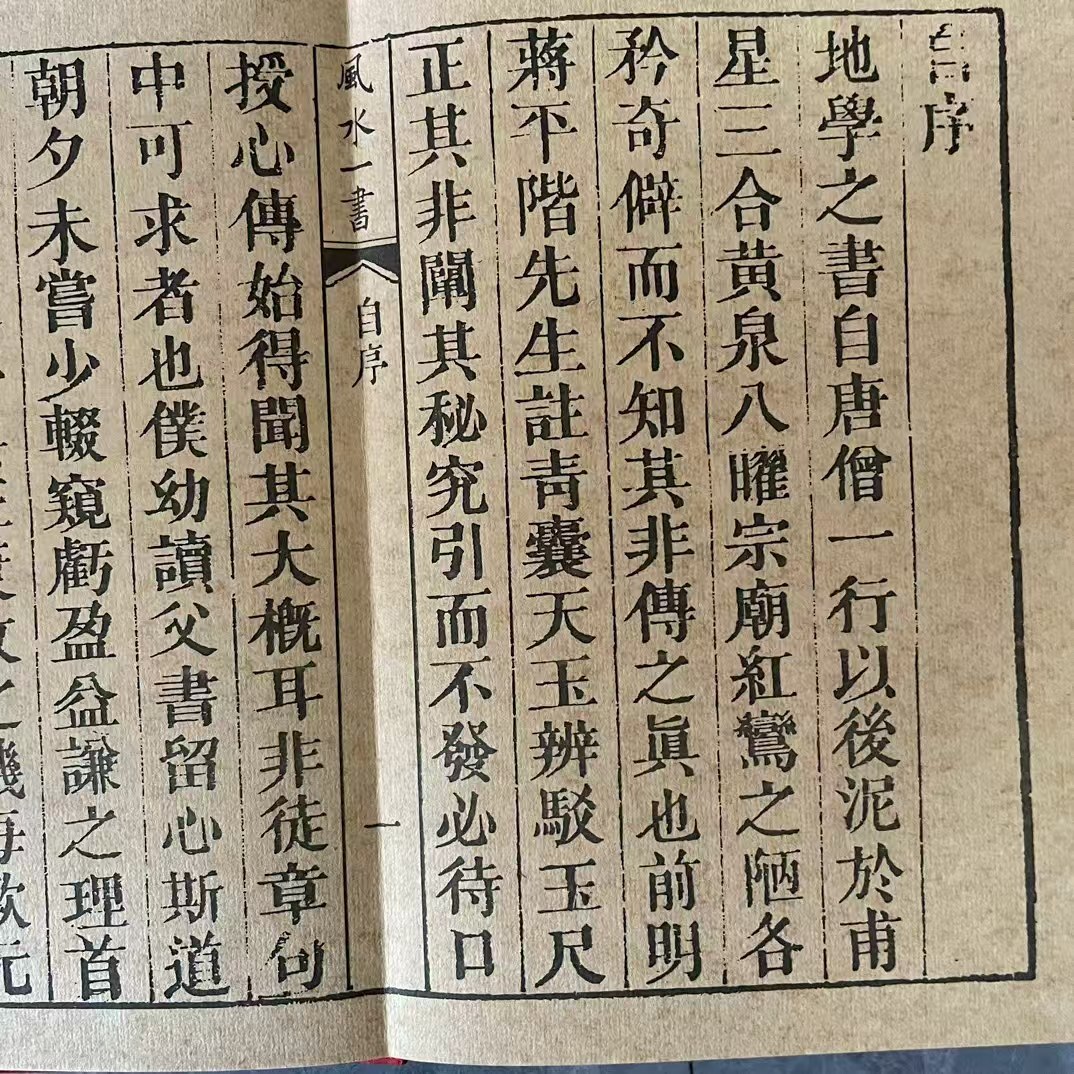 自序
地學之書自唐僧一行以後泥於甫
星三合黄泉八曜宗廟紅鸞之陋各
矜奇僻而不知其非傳之眞也前明
蔣平階先生註青囊天玉辨駁玉尺
正其非闡其秘究引而不發必待口
風水一書
自序
一
授心傳始得聞其大概耳非徒章句
中可求者也僕幼讀父書留心斯道
朝夕未嘗少輟窺虧盈益謙之理首
之機每歎元